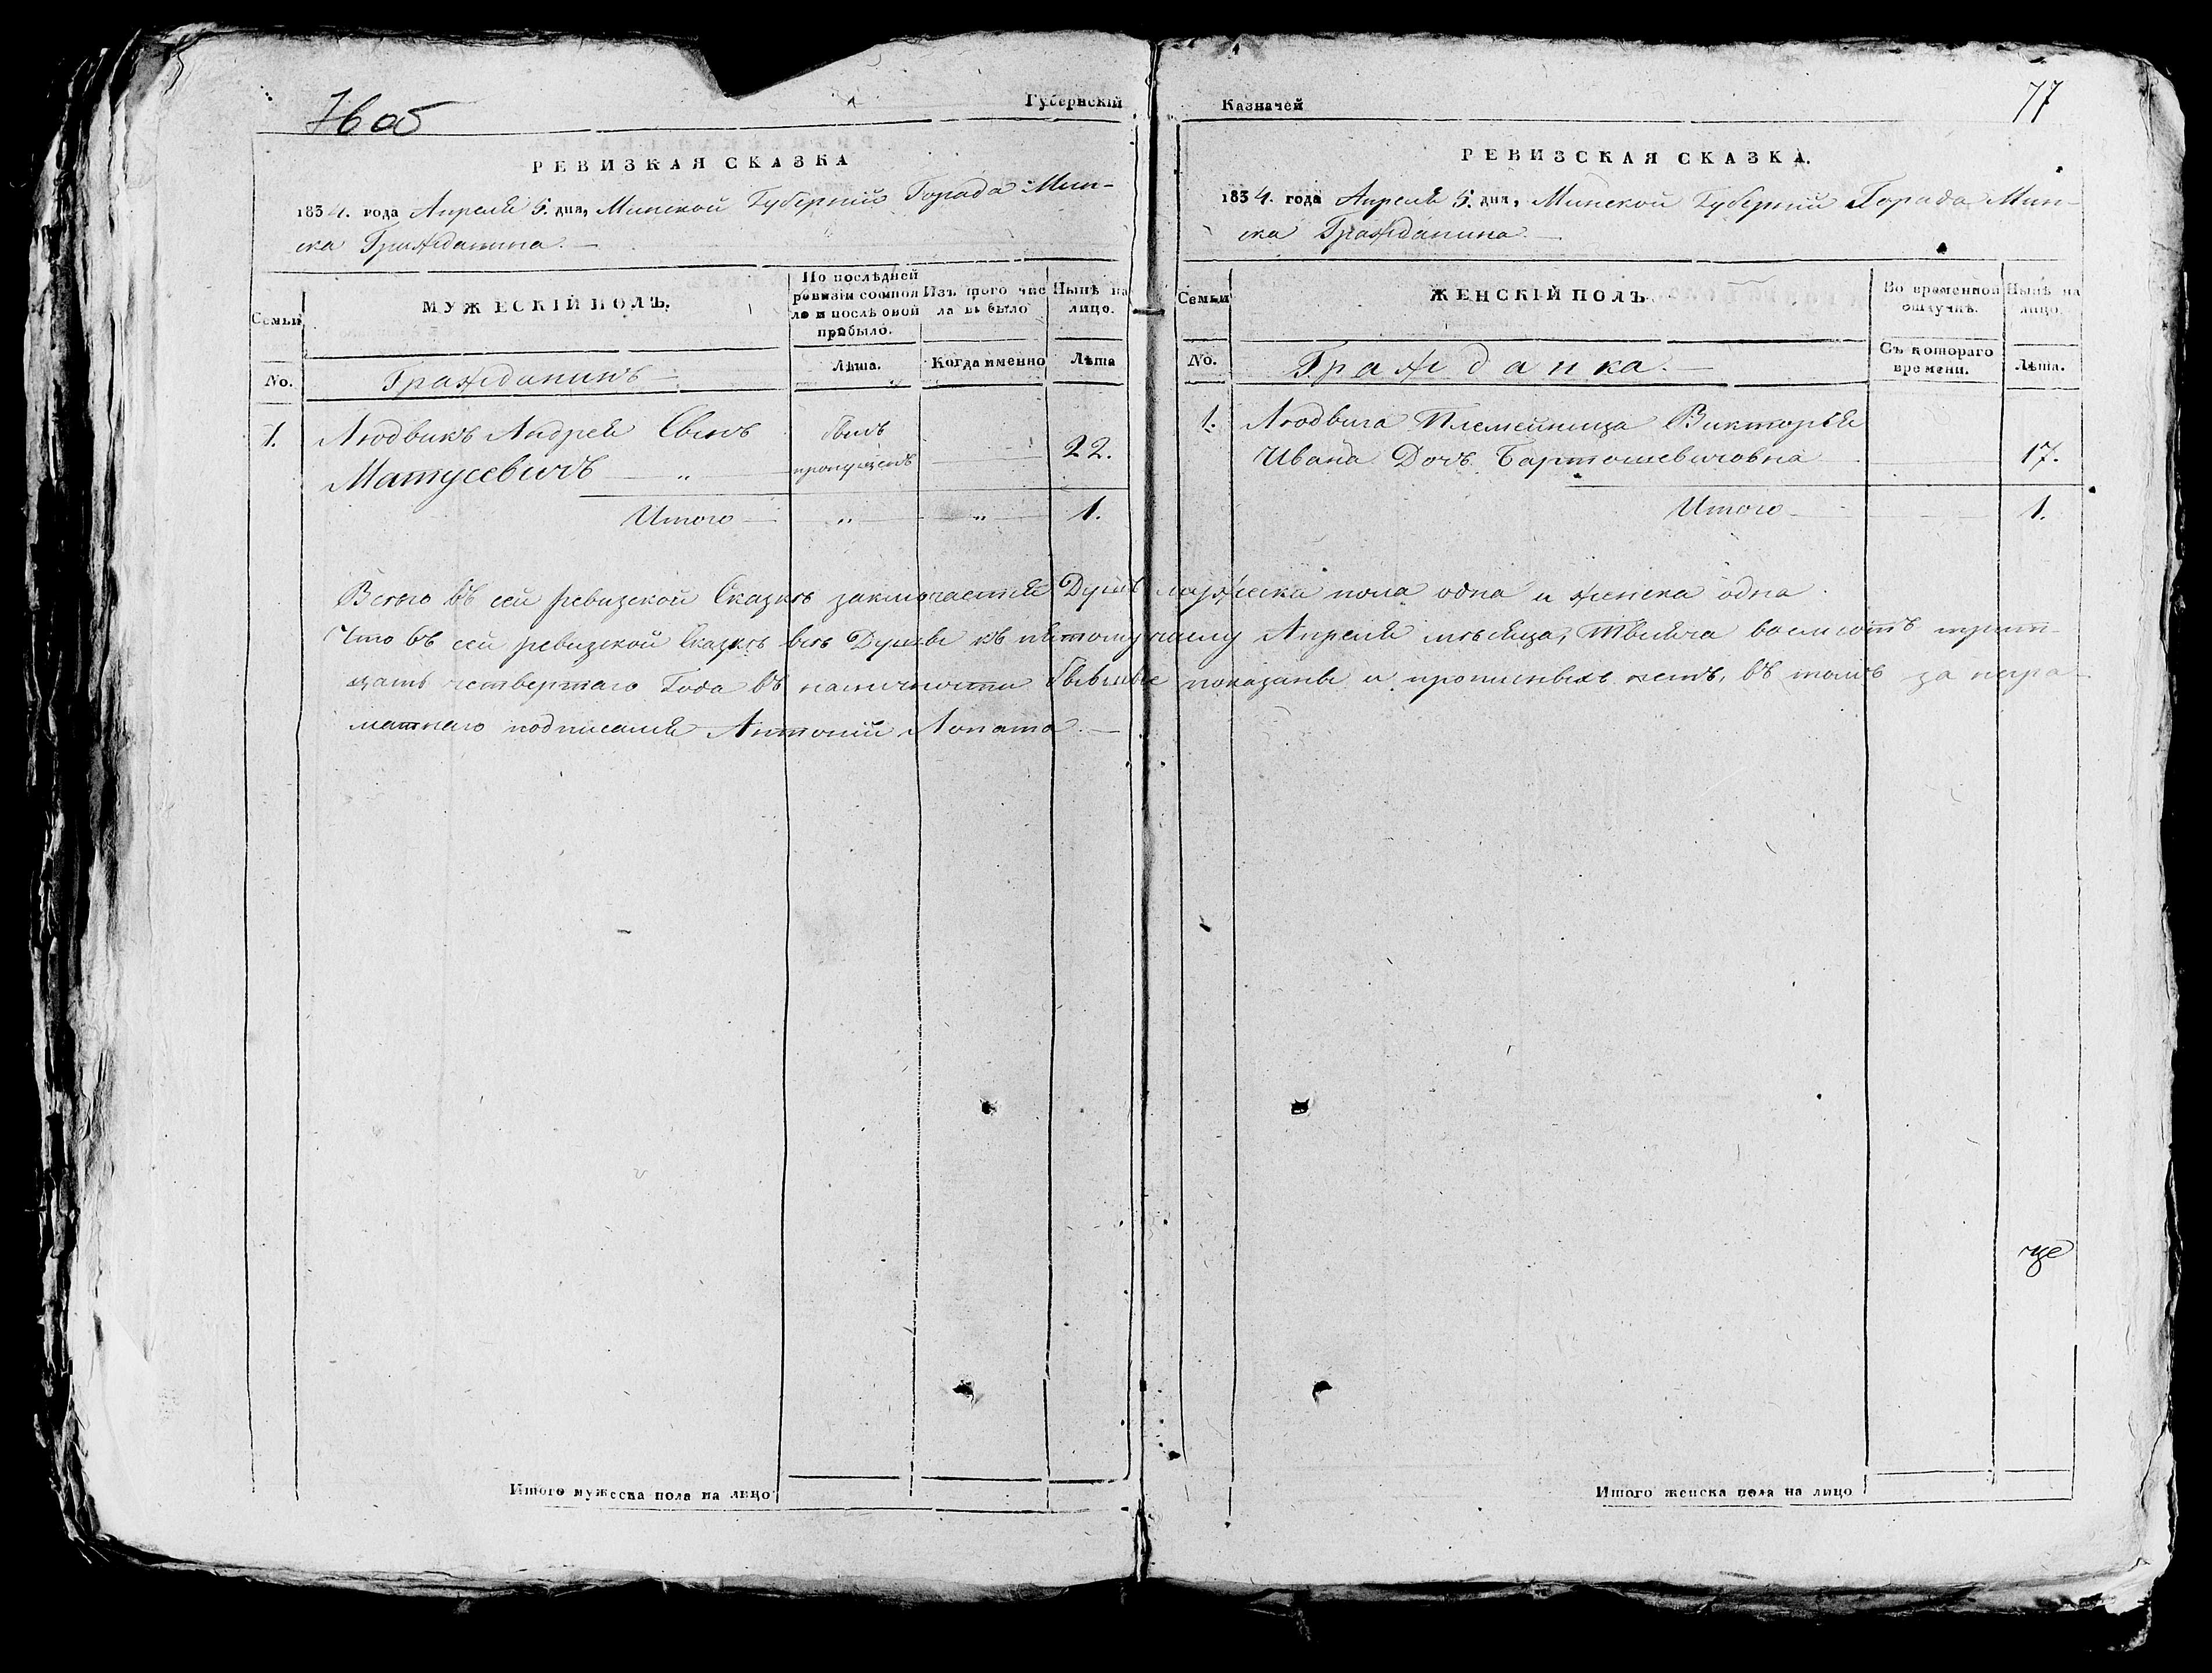 76 об
Губернскій
РЕВИЗКАЯ СКАЗКА
1834. года Апреля 5. дня, Минской Губерніи Города Мин-
ска Гражданина.
Семьи
No.
МУЖЕСКІЙ ПОЛЪ.
Гражданинъ
По послѣдней
ревизіи состоя
ло и послѣ оной
прибыло.
Лѣта.
Изъ того чис
ла выбыло
Когда именно
Нынѣ на
лицо.
Лѣта
1. Людвикъ Андрея Сынъ былъ
Матусевичъ " пропущенъ 22.
Итого " " 1.
Казначей
77
РЕВИЗСКАЯ СКАЗКА.
1834. года Апреля 5. дня, Минской Губерніи Города Мин-
ска Гражданина.
Семьи
No.
ЖЕНСКІЙ ПОЛЪ
Гражданка.
Во временной
отлучкѣ.
Съ котораго
времени.
Нынѣ на
лицо.
Лѣта.
1. Людвига Племенница Викторья
Ивана Дочь Бартошевичовна 17.
Итого 1.
Всего въ сей ревизской Сказкѣ заключается Душъ мужеска пола одна и женска одна
Что въ сей ревизской Сказкѣ всѣ Душы къ пятому числу Апреля мѣсяца, Тысяча восмсотъ трит-
цать четвертаго Года въ наличности бывшые показаны и прописныхъ нетъ, въ томъ за негра-
матнаго подписался Антоній Лопата.
Итого мужеска пола на лицо
Итого женска пола на лицо